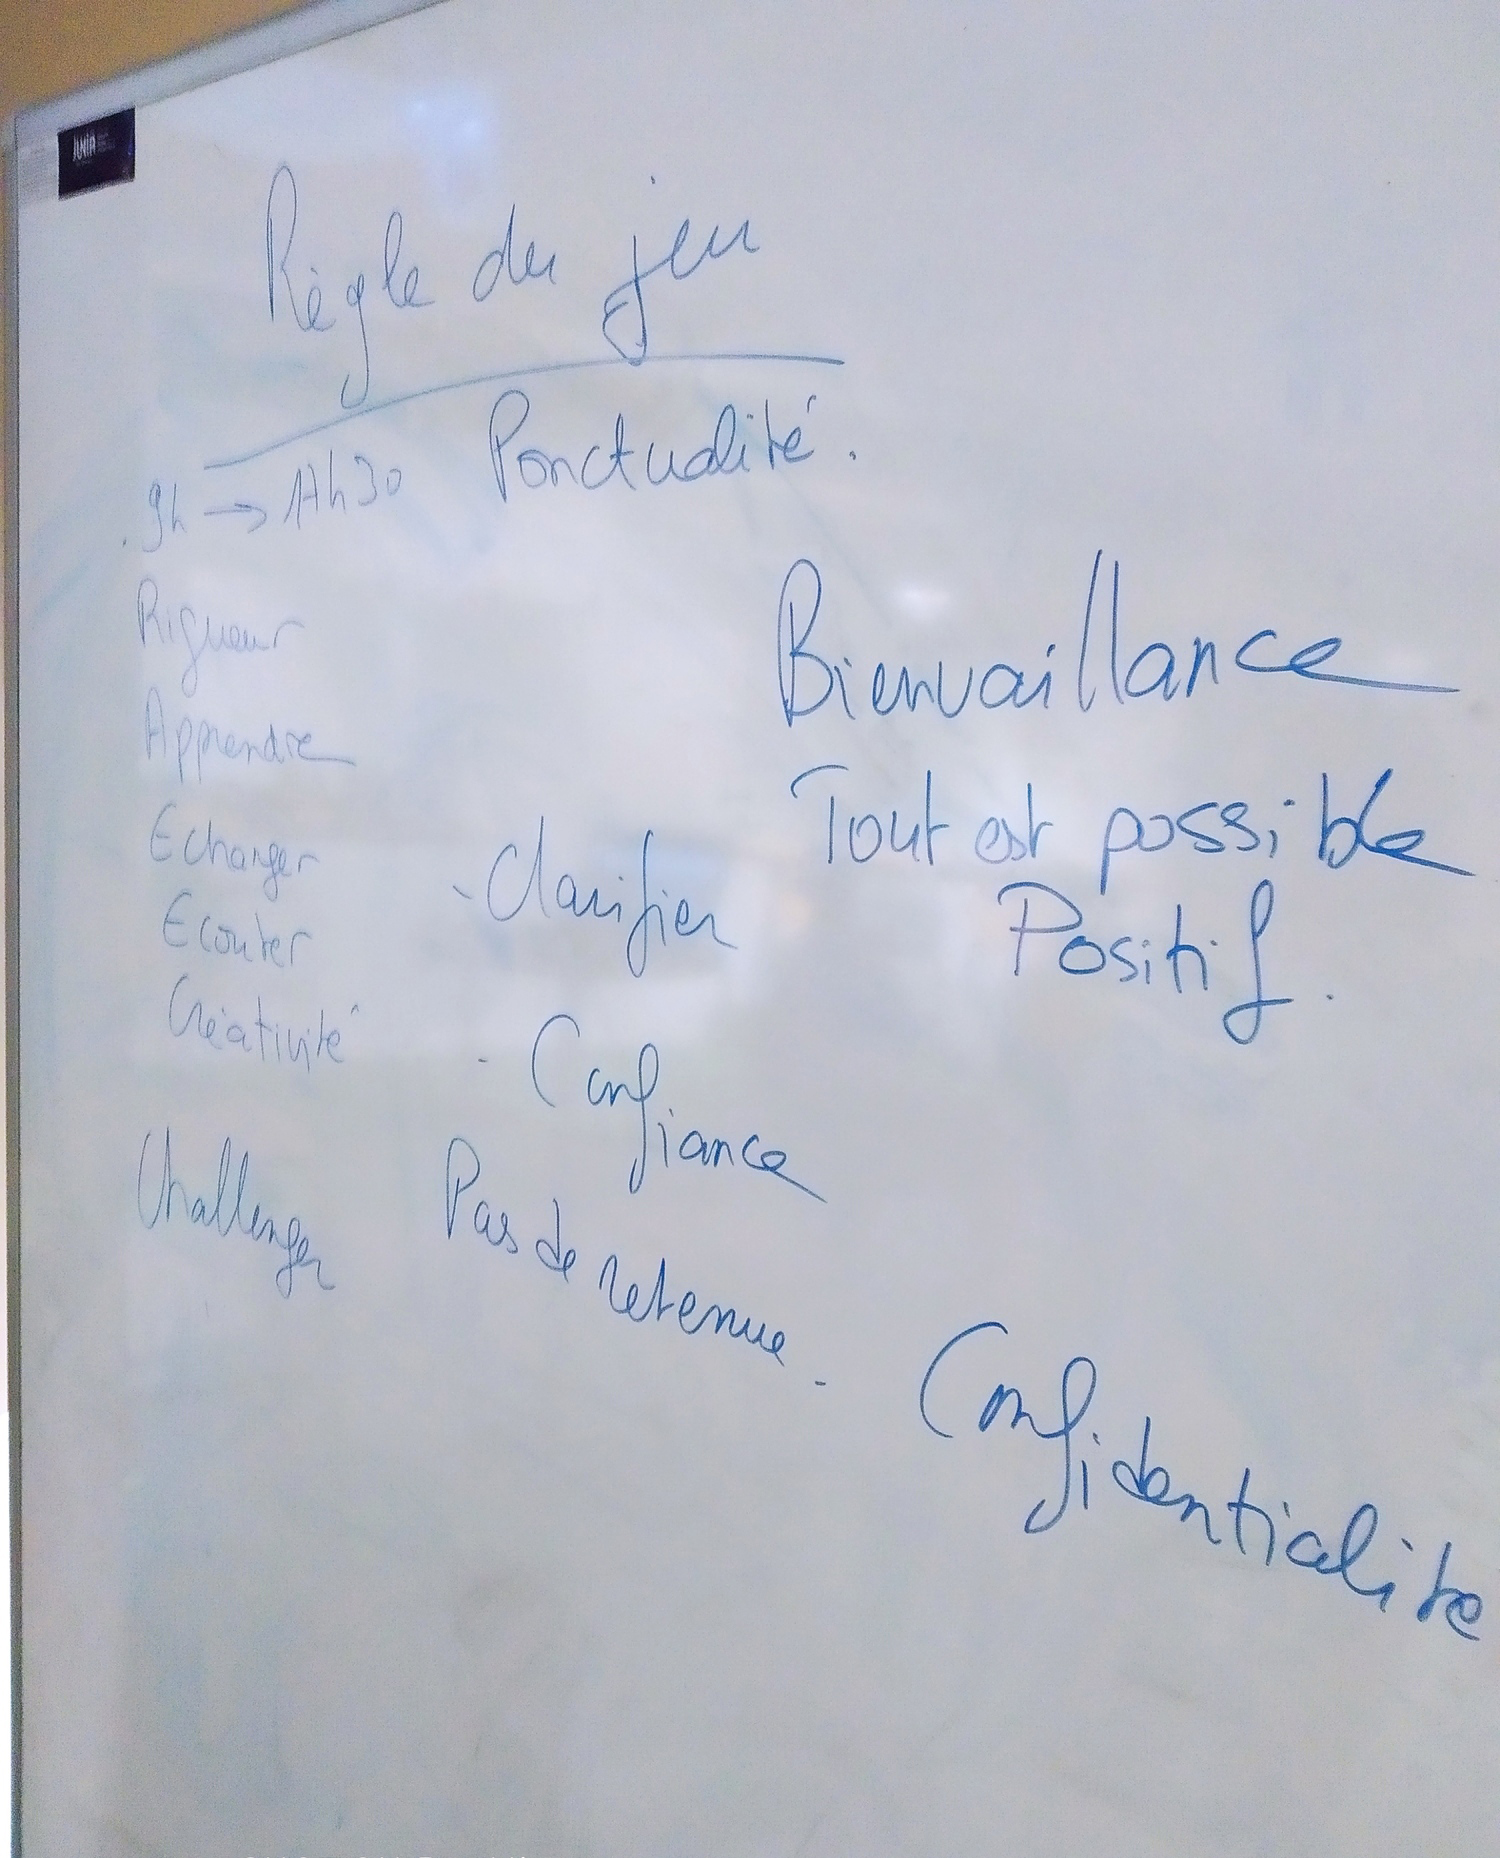 JUNIA
Règle du jeu
. 9h → 17h30 Ponctualité.
Rigueur
Bienvaillance
Apprendre
Tout est possible
Echanger
- Clarifier
Positif.
Ecouter
Créativité
- Confiance
Challenger
Pas de retenue.
Confidentialite